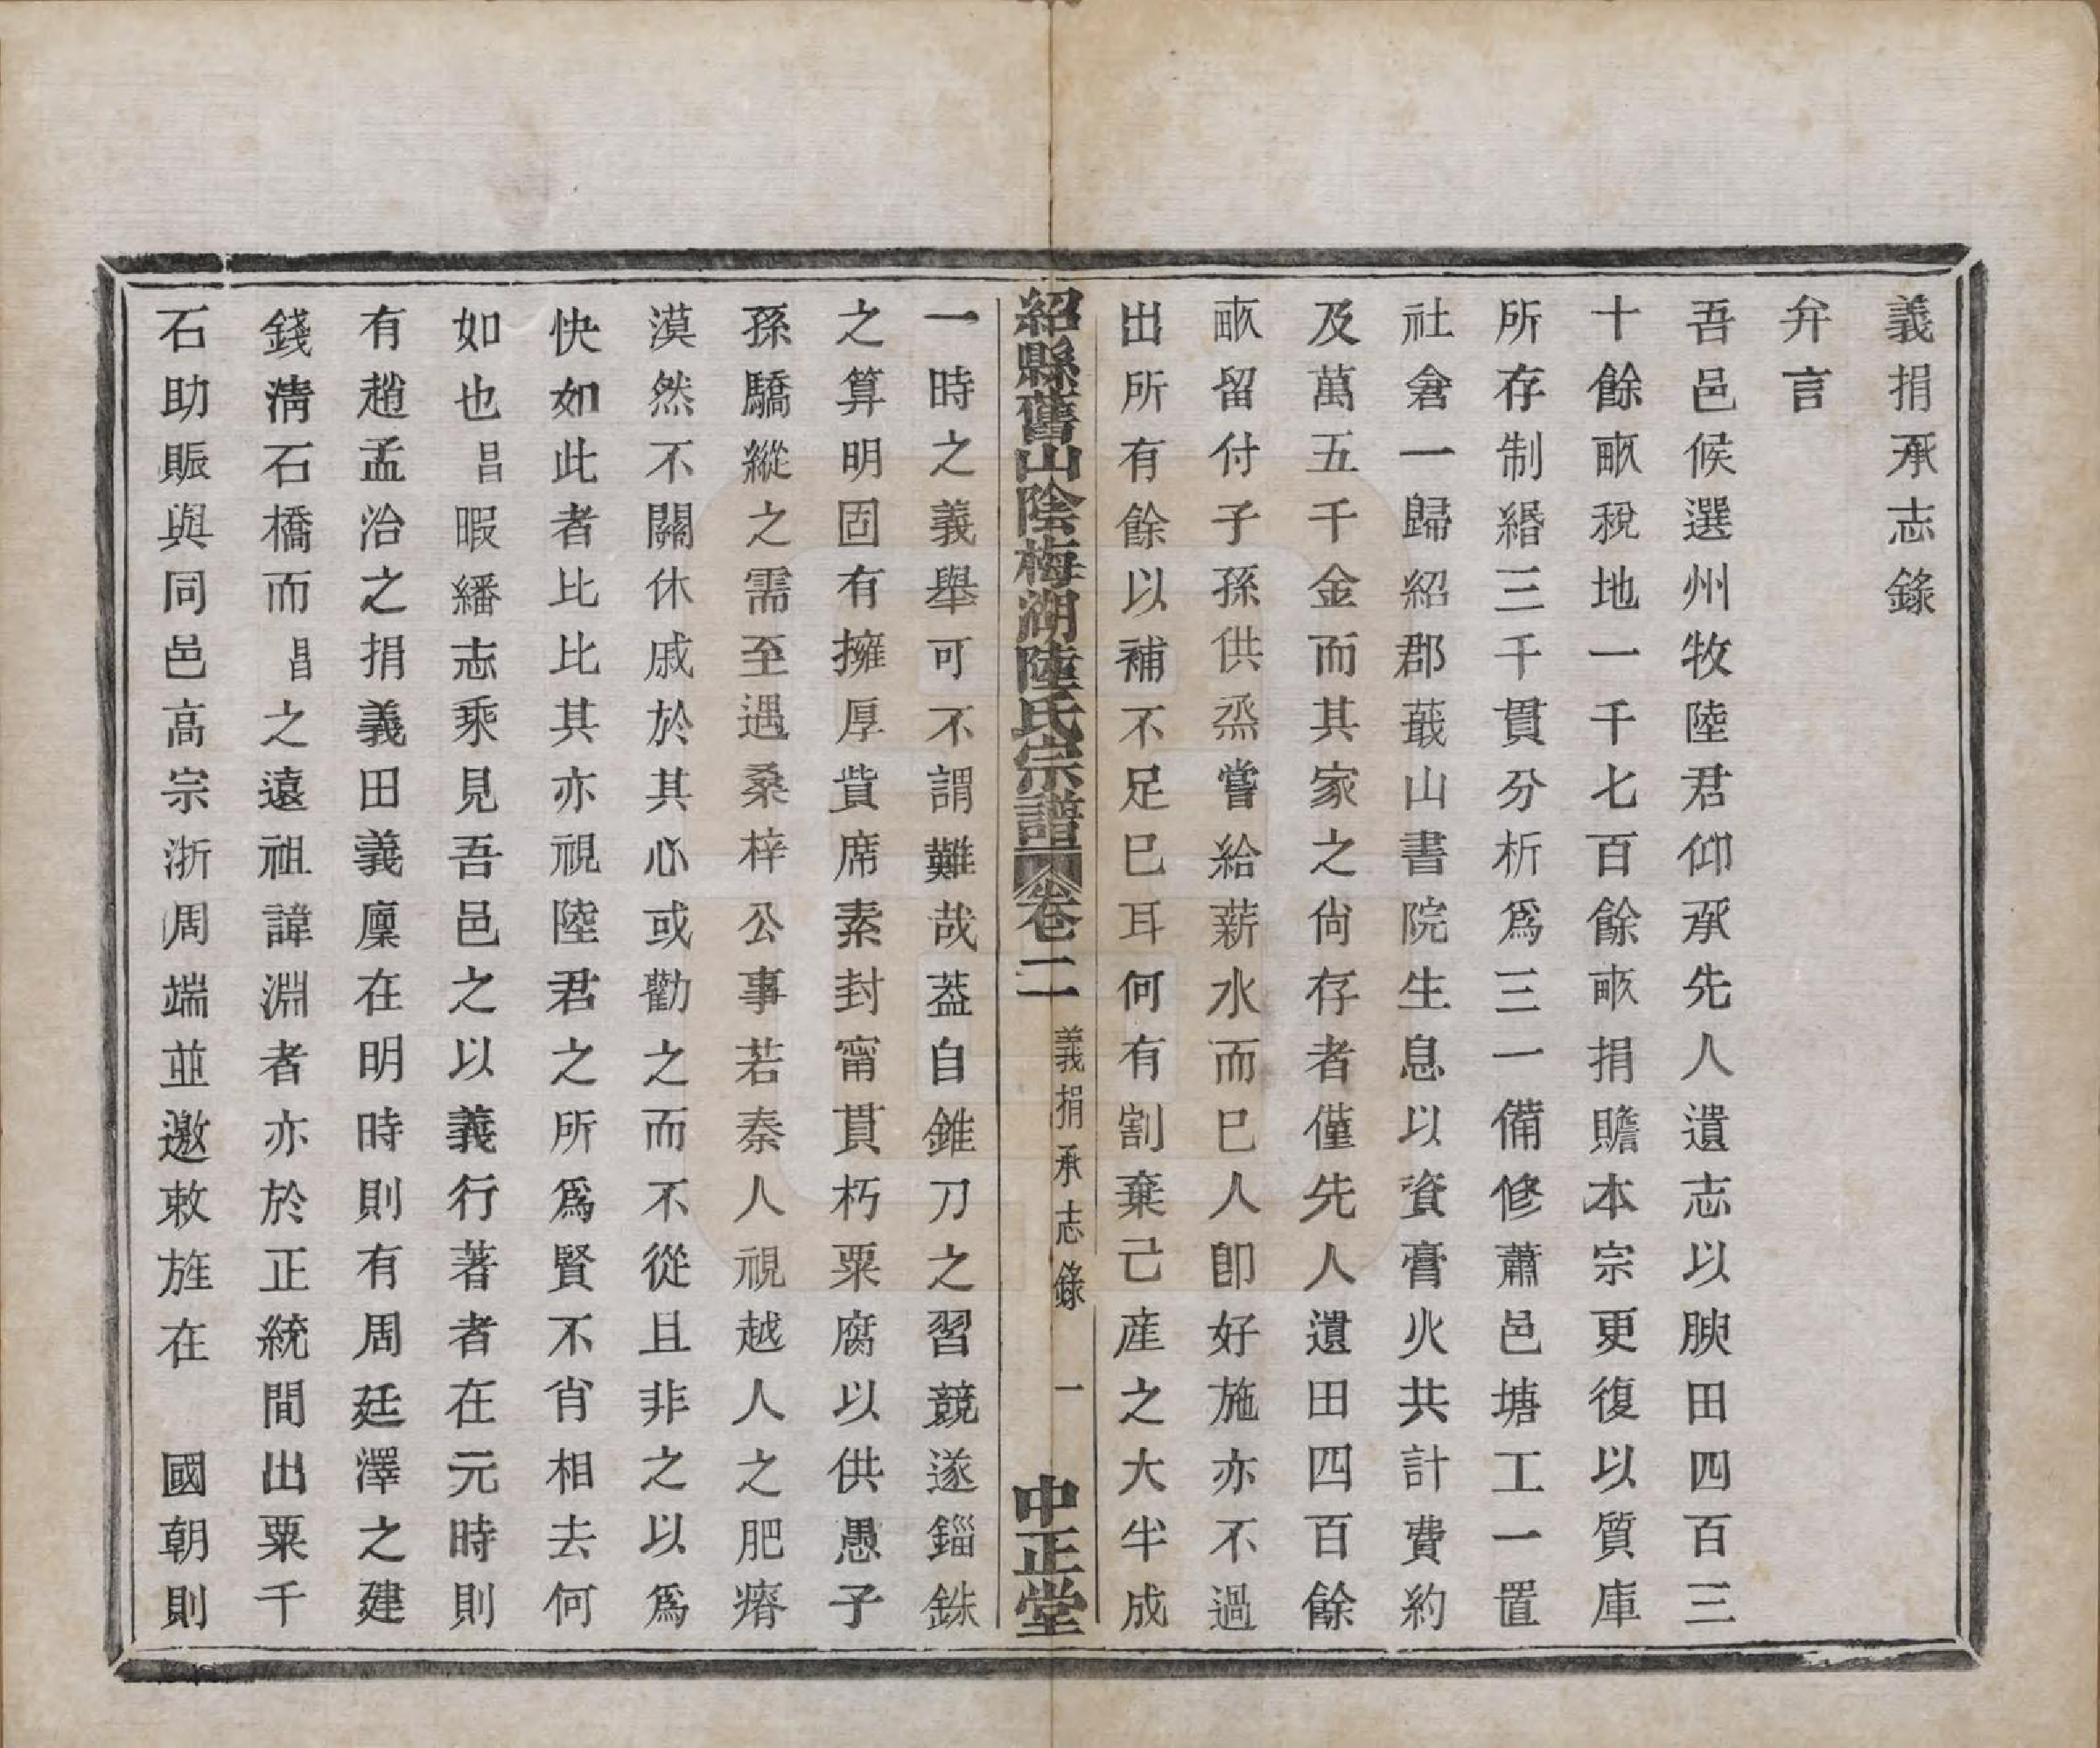 義捐承志錄
弁言
吾邑候選州牧陸君仰承先人遺志以腴田四百三
十餘畝稅地一千七百餘畝捐贍本宗更復以質庫
所存制緡三千貫分析爲三一備修蕭邑塘工一置
社倉一歸紹郡蕺山書院生息以資膏火共計費約
及萬五千金而其家之尙存者僅先人遺田四百餘
畝留付子孫供烝嘗給薪水而巳人卽好施亦不過
出所有餘以補不足巳耳何有割棄己產之大半成
紹縣舊山陰梅湖陸氏宗譜 卷二 義捐承志錄 一 中正堂
一時之義舉可不謂難哉葢自錐刀之習競遂錙銖
之算明固有擁厚貲席素封甯貫朽粟腐以供愚子
孫驕縱之需至遇桑梓公事若秦人視越人之肥瘠
漠然不關休戚於其心或勸之而不從且非之以爲
快如此者比比其亦視陸君之所爲賢不肖相去何
如也昌暇繙志乘見吾邑之以義行著者在元時則
有趙孟治之捐義田義廩在明時則有周廷澤之建
錢淸石橋而昌之遠祖諱淵者亦於正統間出粟千
石助賑與同邑高宗浙周端並邀敕旌在　國朝則